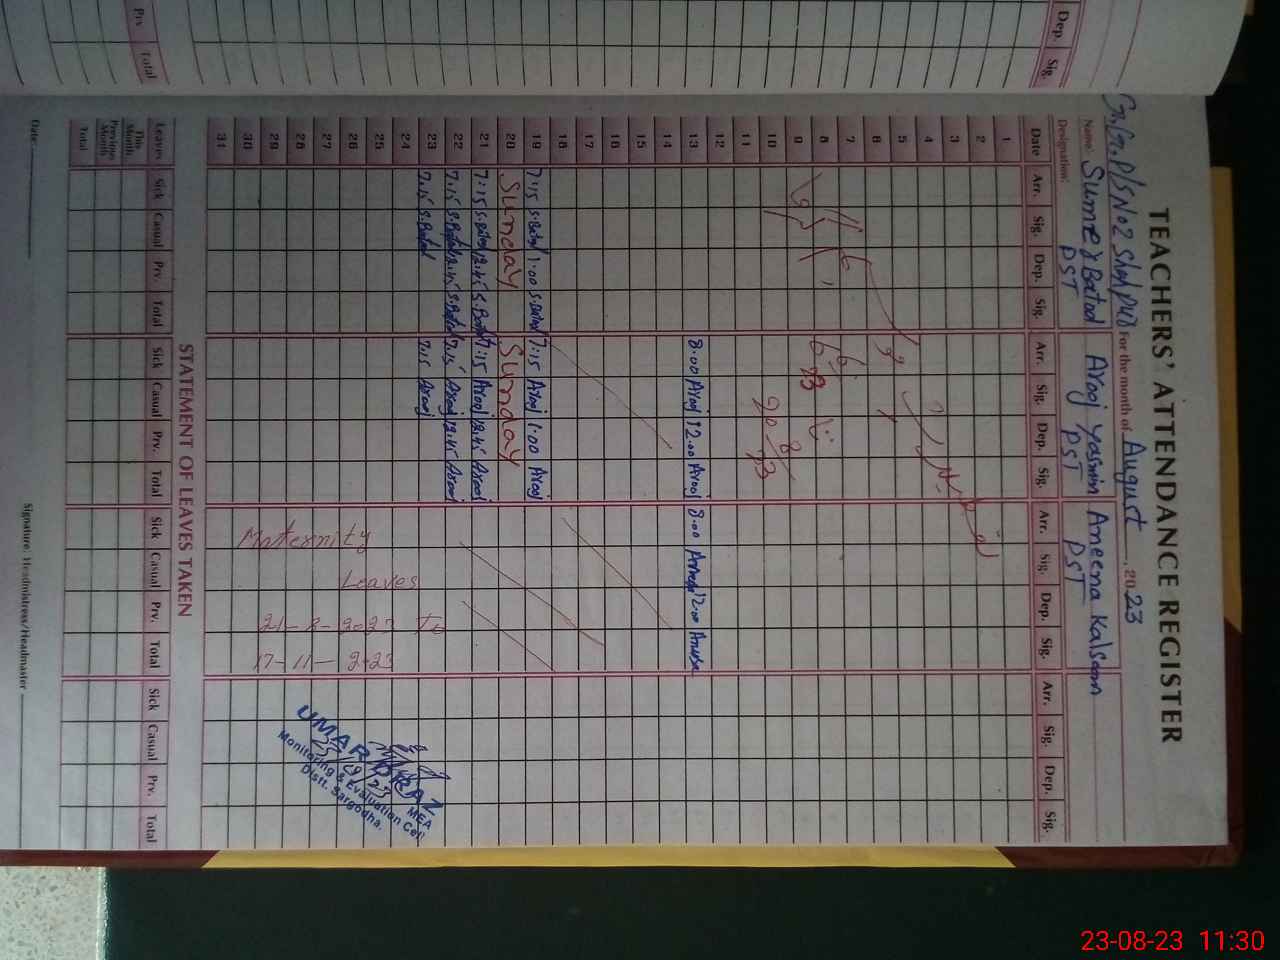 TEACHERS' ATTENDANCE REGISTER
G.G.P/S No2 Shahpur For the month of August, 2023
Name: Sumeya Batool Arooj Yasmin Ameena Kalsoom
Designation: PST PST PST
Date Arr. Sig. Dep. Sig. Arr. Sig. Dep. Sig. Arr. Sig. Dep. Sig. Arr. Sig. Dep. Sig.
1
2
3
4
5
6
7
8
9
10
11
12
13 8.00 Arooj 12.00 Arooj 8.00 12.00
14
15
16
17
18
19 7:15 S.Batool 1:00 S.Batool 7:15 Arooj 1.00 Arooj
20 Sunday Sunday
21 7:15 S.Batool 12.45 S.Batool 7:15 Arooj 12.45 Arooj
22 7.15 S.Batool 12.45 S.Batool 7.15 Arooj 12.45 Arooj
23 7.15 S.Batool 7.15 Arooj
24
25
26
27
28
29
30
31
Maternity
Leaves
21-8-2023 To
17-11-2023
UMAR DRAZ
MEA
Monitoring & Evaluation Cell
Distt. Sargodha.
STATEMENT OF LEAVES TAKEN
Leaves Sick Casual Prv. Total Sick Casual Prv. Total Sick Casual Prv. Total Sick Casual Prv. Total
This Month
Previous Month
Total
Date: Signature: Headmistress/Headmaster
Dep. Sig.
Prv. Total
23-08-23 11:30